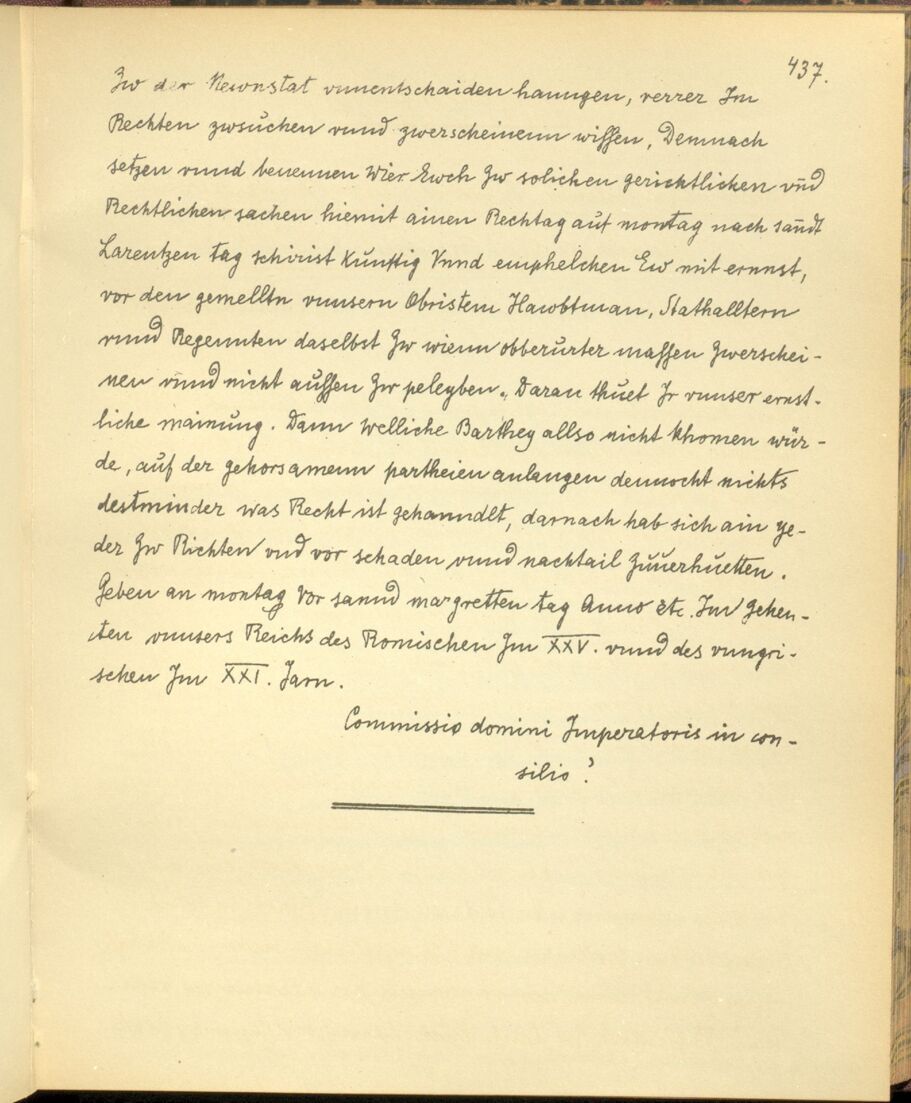 437.
Zw der Newnstat vnnentschaiden hanngen, verrer Im
Rechten zwsuchen vnnd zwerscheinenn wissen, Demnach
setzen vnnd benennen Wier Ewch Zw solichen gerichtlichen vnd
Rechtlichen sachen hiemit ainen Rechtag auf montag nach sandt
Larentzen tag schirist kunftig Vnnd emphelchen Ew mit ernnst,
vor den gemelltn vnnsern Obristem Hawbtman, Stathalltern
vnnd Regennten daselbst Zw wienn obberurter massen Zwerschei-
nen vnnd nicht aussen Zw peleyben. Daran thuet Ir vnnser ernst-
liche mainung. Dann Welliche Barthey allso nicht khomen wür-
de, auf der gehorsamenn partheien anlangen dennocht nichts
destminder was Recht ist gehanndlt, darnach hab sich ain ye-
der Zw Richten vnd vor schaden vnnd nachtail Zuuerhuetten.
Geben an montag Vor sannd margretten tag Anno etc. Im Zehen-
ten vnnsers Reichs des Romischen Im XXV. vnnd des vnngri-
schen Im XXI. Jarn.
Commissio domini Imperatoris in con-
silio?